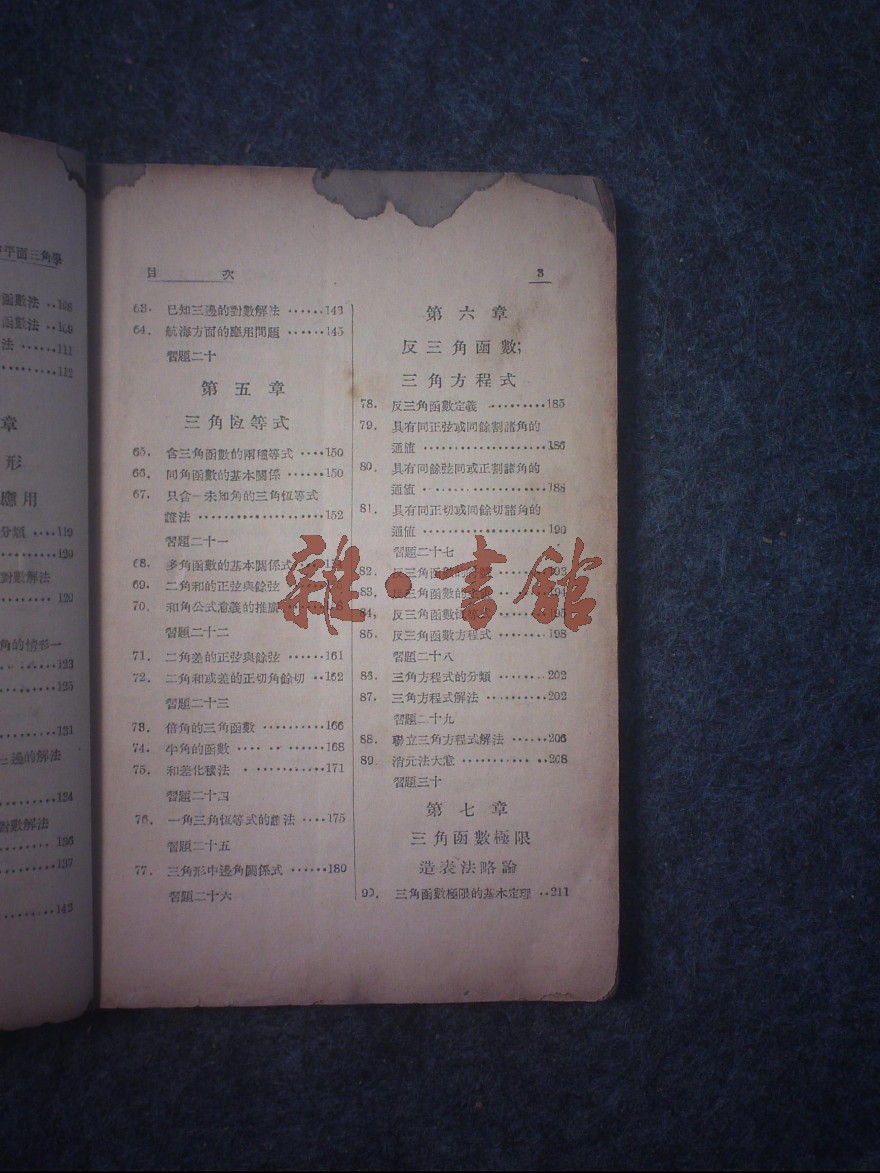 平面三角學
函數法 ‥108
函數法 ‥109
法 ‥‥‥111
‥‥‥‥112
章
形
應用
分類 ‥‥119
‥‥‥‥120
對數解法
‥‥‥‥120
角的情形一
‥‥‥‥123
‥‥‥‥125
‥‥‥‥131
三邊的解法
‥‥‥‥134
對數解法
‥‥‥‥136
‥‥‥‥137
‥‥‥‥142
目 次 3
63. 已知三邊的對數解法 ‥‥‥143
64. 航海方面的應用問題 ‥‥‥145
習題二十
第五章
三角恆等式
65. 含三角函數的兩種等式 ‥‥150
66. 同角函數的基本關係 ‥‥‥150
67. 只含一未知角的三角恆等式
證法 ‥‥‥‥‥‥‥‥152
習題二十一
68. 多角函數的基本關係式
69. 二角和的正弦與餘弦
70. 和角公式意義的推廣
習題二十二
71. 二角差的正弦與餘弦 ‥‥‥161
72. 二角和或差的正切角餘切 ‥162
習題二十三
73. 倍角的三角函數 ‥‥‥‥‥166
74. 半角的函數 ‥‥‥‥‥‥168
75. 和差化積法 ‥‥‥‥‥‥171
習題二十四
76. 一角三角恆等式的證法 ‥‥175
習題二十五
77. 三角形中邊角關係式 ‥‥‥180
習題二十六
第六章
反三角函數;
三角方程式
78. 反三角函數定義 ‥‥‥‥‥185
79. 具有同正弦或同餘割諸角的
通值 ‥‥‥‥‥‥‥‥186
80. 具有同餘弦同或正割諸角的
通值 ‥‥‥‥‥‥‥‥188
81. 具有同正切或同餘切諸角的
通值 ‥‥‥‥‥‥‥‥190
習題二十七
82. 反三角函數的 193
83. 反三角函數的 194
84. 反三角函數恆等式 195
85. 反三角函數方程式 ‥‥‥‥198
習題二十八
86. 三角方程式的分類 ‥‥‥‥202
87. 三角方程式解法 ‥‥‥‥‥202
習題二十九
88. 聯立三角方程式解法 ‥‥‥206
89. 消元法大意 ‥‥‥‥‥‥208
習題三十
第七章
三角函數極限
造表法略論
90. 三角函數極限的基本定理 ‥211
雜·書館